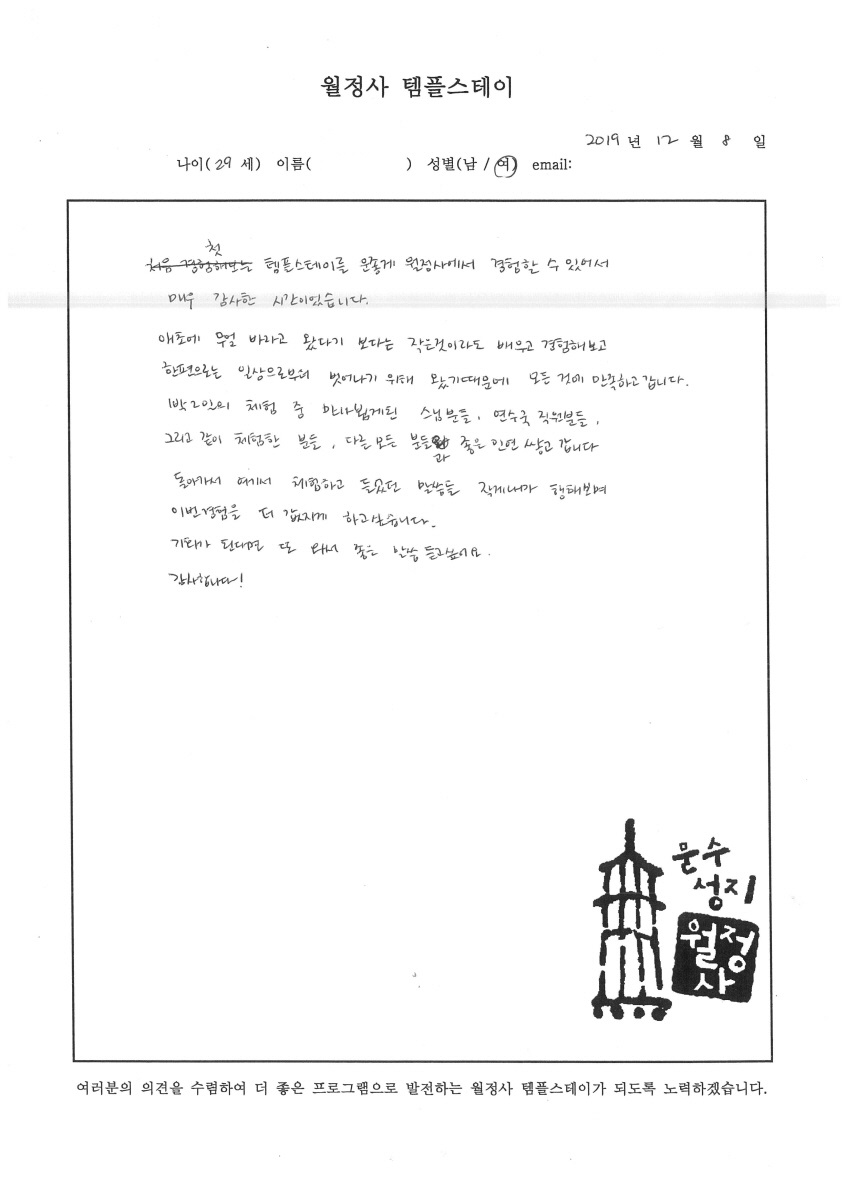 월정사 템플스테이
2019 년 12 월 8 일
나이( 29 세) 이름( ) 성별(남 / 여) email:
첫
처음 경험해보는 템플스테이를 운좋게 월정사에서 경험할 수 있어서
매우 감사한 시간이었습니다.
애초에 무얼 바라고 왔다기 보다는 작은것이라도 배우고 경험해보고
한편으로는 일상으로부터 벗어나기 위해 왔기때문에 모든 것에 만족하고 갑니다.
1박2일의 체험 중 만나뵙게된 스님분들, 연수국 직원분들,
그리고 같이 체험한 분들, 다른 모든 분들과 좋은 인연 쌓고 갑니다
돌아가서 여기서 체험하고 들었던 말씀들 작게나마 행해보며
이번경험을 더 값지게 하고싶습니다.
기회가 된다면 또 와서 좋은 말씀 듣고싶어요.
감사합니다!
문수
성지
월정
사
여러분의 의견을 수렴하여 더 좋은 프로그램으로 발전하는 월정사 템플스테이가 되도록 노력하겠습니다.